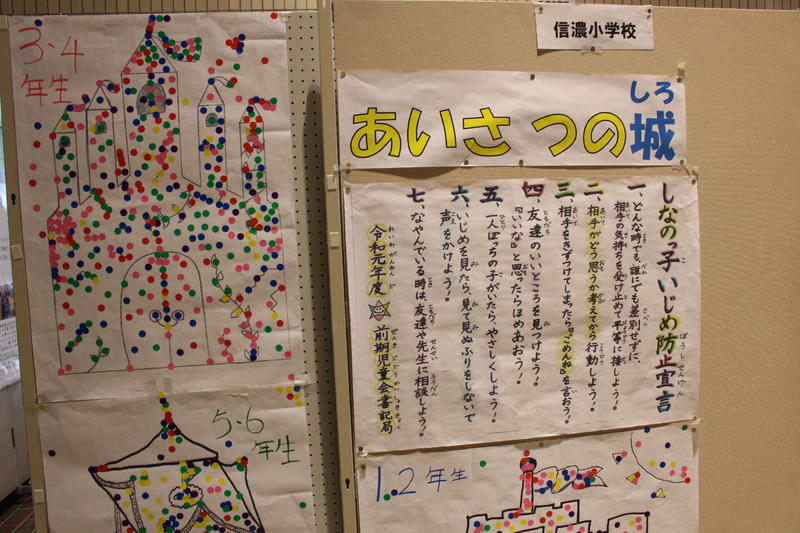 3・4
年生
信濃小学校
しろ
あいさつの城
しなのっ子いじめ防止宣言
一、どんな時でも、誰にでも差別せずに、
相手の気持ちを受け止めて平等に接しよう！
二、相手がどう思うか考えてから行動しよう！
三、相手をきずつけてしまったら「ごめんね」を言おう。
四、友達のいいところを見つけよう！
「いいな」と思ったらほめあおう！
五、一人ぼっちの子がいたら、やさしくしよう！
六、いじめを見たら、見て見ぬふりをしないで
声をかけよう！
七、なやんでいる時は、友達や先生に相談しよう。
令和元年度 前期児童会書記局
5・6
年生
1.2年生